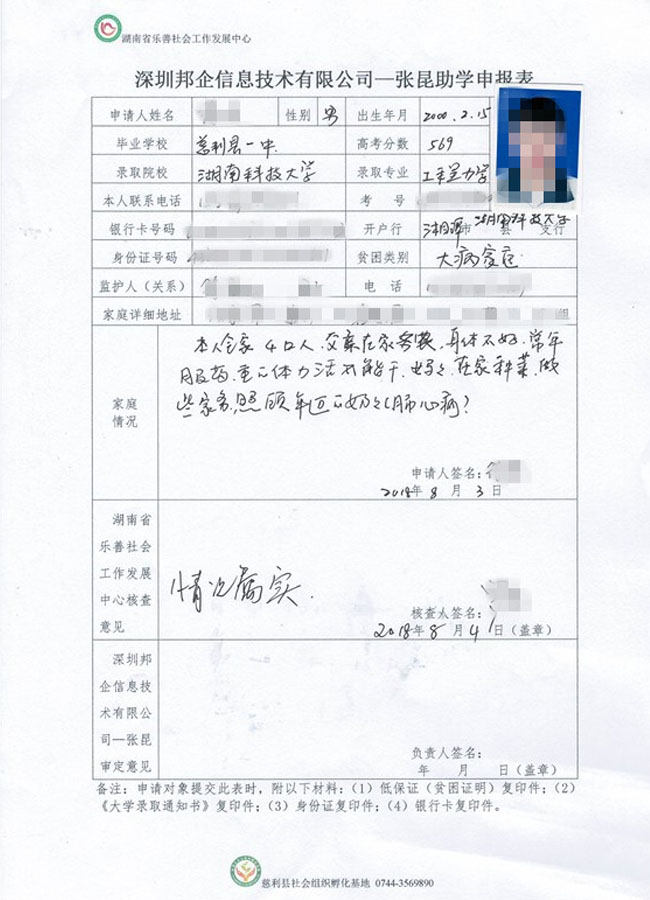 湖南省乐善社会工作发展中心
深圳邦企信息技术有限公司—张昆助学申报表
申请人姓名 性别 男 出生年月 2000.2.15
毕业学校 慈利县一中 高考分数 569
录取院校 湖南科技大学 录取专业 工程力学
本人联系电话 考 号
银行卡号码 开户行 湘潭市 湖南科技大学 县 支行
身份证号码 贫困类别 大病家庭
监护人（关系） 电 话
家庭详细地址 组
家庭
情况
本人全家4口人,父亲在家务农,身体不好,常年
服药,重体力活不能干,妈妈在家种菜,做
些家务,照顾年迈奶奶(肺心病)
申请人签名：
2018年 8 月 3 日
湖南省
乐善社会
工作发展
中心核查
意见
情况属实.
核查人签名：
2018年 8 月 4 日（盖章）
深圳邦
企信息技
术有限公
司—张昆
审定意见
负责人签名：
年 月 日（盖章）
备注：申请对象提交此表时，附以下材料：（1）低保证（贫困证明）复印件；（2）
《大学录取通知书》复印件；（3）身份证复印件；（4）银行卡复印件。
慈利县社会组织孵化基地 0744-3569890